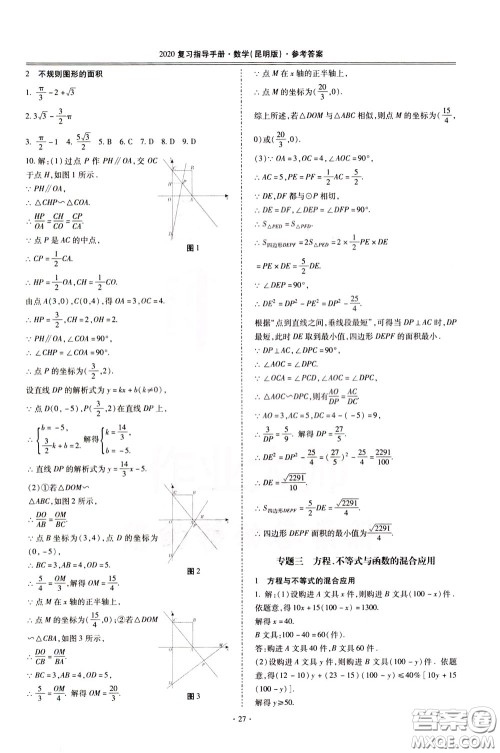 2020 复习指导手册·数学(昆明版)·参考答案
2 不规则图形的面积
1. π/3 - 2 + √3
2. 3√3 - 3/2 π
3. π/3 - 1 4. 5√3/2 5. B 6. C 7. D 8. D 9. D
10. 解:(1)过点 P 作 PH∥OA,交 OC
于点 H,如图 1 所示.
∵ PH∥OA,
∴ △CHP∽△COA.
∴ HP/OA = CH/CO = CP/CA.
∵ 点 P 是 AC 的中点,
∴ CP = 1/2 CA.
∴ HP = 1/2 OA, CH = 1/2 CO.
图 1
由点 A(3,0),C(0,4),得 OA = 3,OC = 4.
∴ HP = 3/2,CH = 2,OH = 2.
∵ PH∥OA,∠COA = 90°,
∴ ∠CHP = ∠COA = 90°.
∴ 点 P 的坐标为(3/2,2).
设直线 DP 的解析式为 y = kx + b(k≠0),
∵ 点 D(0,-5),P(3/2,2)在直线 DP 上,
∴ { b = -5, 3/2 k + b = 2. 解得 { k = 14/3, b = -5.
∴ 直线 DP 的解析式为 y = 14/3 x - 5.
(2)①若△DOM∽
△ABC,如图 2 所示,
∴ DO/AB = OM/BC.
∵ BC = 3,AB = 4,OD = 5,
∴ 5/4 = OM/3. 解得 OM = 15/4.
∵ 点 M 在 x 轴的正半轴上,
图 2
∴ 点 M 的坐标为(15/4,0);②若△DOM
∽△CBA,如图 3 所示,
∴ DO/CB = OM/BA.
∵ BC = 3,AB = 4,OD = 5,
∴ 5/3 = OM/4. 解得 OM = 20/3.
图 3
∵ 点 M 在 x 轴的正半轴上,
∴ 点 M 的坐标为(20/3,0).
综上所述,若△DOM 与△ABC 相似,则点 M 的坐标为(15/4,
0)或(20/3,0).
(3)∵ OA = 3,OC = 4,∠AOC = 90°,
∴ AC = 5,PE = PF = 1/2 AC = 5/2.
∵ DE,DF 都与⊙P 相切,
∴ DE = DF,∠DEP = ∠DFP = 90°.
∴ S△PED = S△PFD.
∴ S四边形DEPF = 2S△PED = 2 × 1/2 PE × DE
= PE × DE = 5/2 DE.
∵ ∠DEP = 90°,
∴ DE² = DP² - PE² = DP² - 25/4.
根据“点到直线之间,垂线段最短”,可得当 DP⊥AC 时,DP
最短,此时 DE 取到最小值,四边形 DEPF 的面积最小.
∵ DP⊥AC,
∴ ∠DPC = 90°.
∴ ∠AOC = ∠DPC.
∵ ∠OCA = ∠PCD,∠AOC = ∠DPC,
∴ △AOC∽△DPC,则有 AO/DP = AC/DC.
∵ AO = 3,AC = 5,DC = 4 - (-5) = 9,
∴ 3/DP = 5/9. 解得 DP = 27/5.
∴ DE² = DP² - 25/4 = (27/5)² - 25/4 = 2291/100.
∴ DE = √2291/10.
∴ S四边形DEPF = 5/2 DE = √2291/4.
∴ 四边形 DEPF 面积的最小值为 √2291/4.
专题三 方程、不等式与函数的混合应用
1 方程与不等式的混合应用
1. 解:(1)设购进 A 文具 x 件,则购进 B 文具(100 - x)件.
依题意,得 10x + 15(100 - x) = 1300.
解得 x = 40.
B 文具:100 - 40 = 60(件).
答:购进 A 文具 40 件,B 文具 60 件.
(2)设购进 A 文具 y 件,则购进 B 文具(100 - y)件. 依题
意,得(12 - 10)y + (23 - 15)(100 - y) ≤ 40% [10y + 15
(100 - y)].
解得 y≥50.
· 27 ·